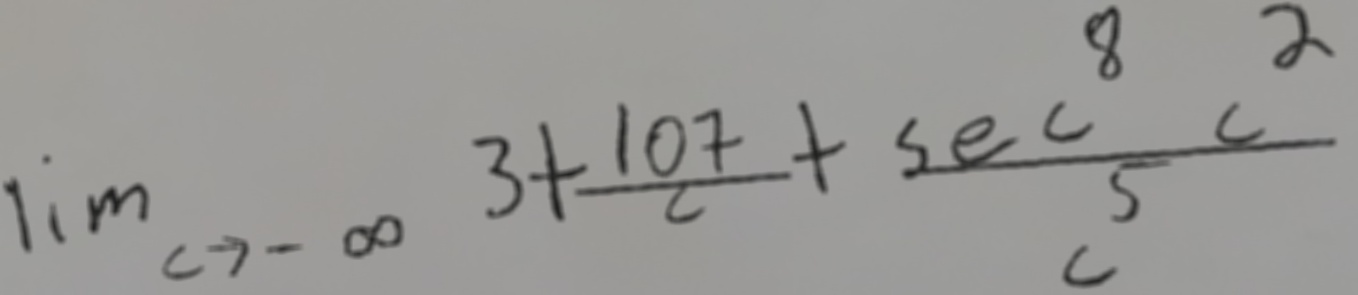 lim_{c→-∞} 3+\frac{107}{c}+\frac{sec^8 c^2}{c^5}